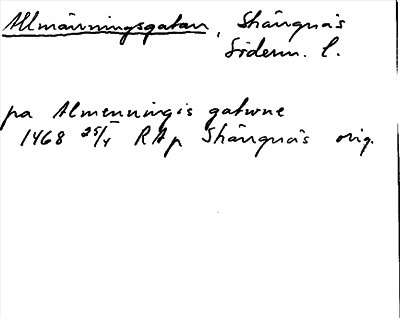 Allmänningsgatan, Skänninge
Söderm. l.
pa Almenningis gatwne
1468 25/4 RAp Skänninge orig.